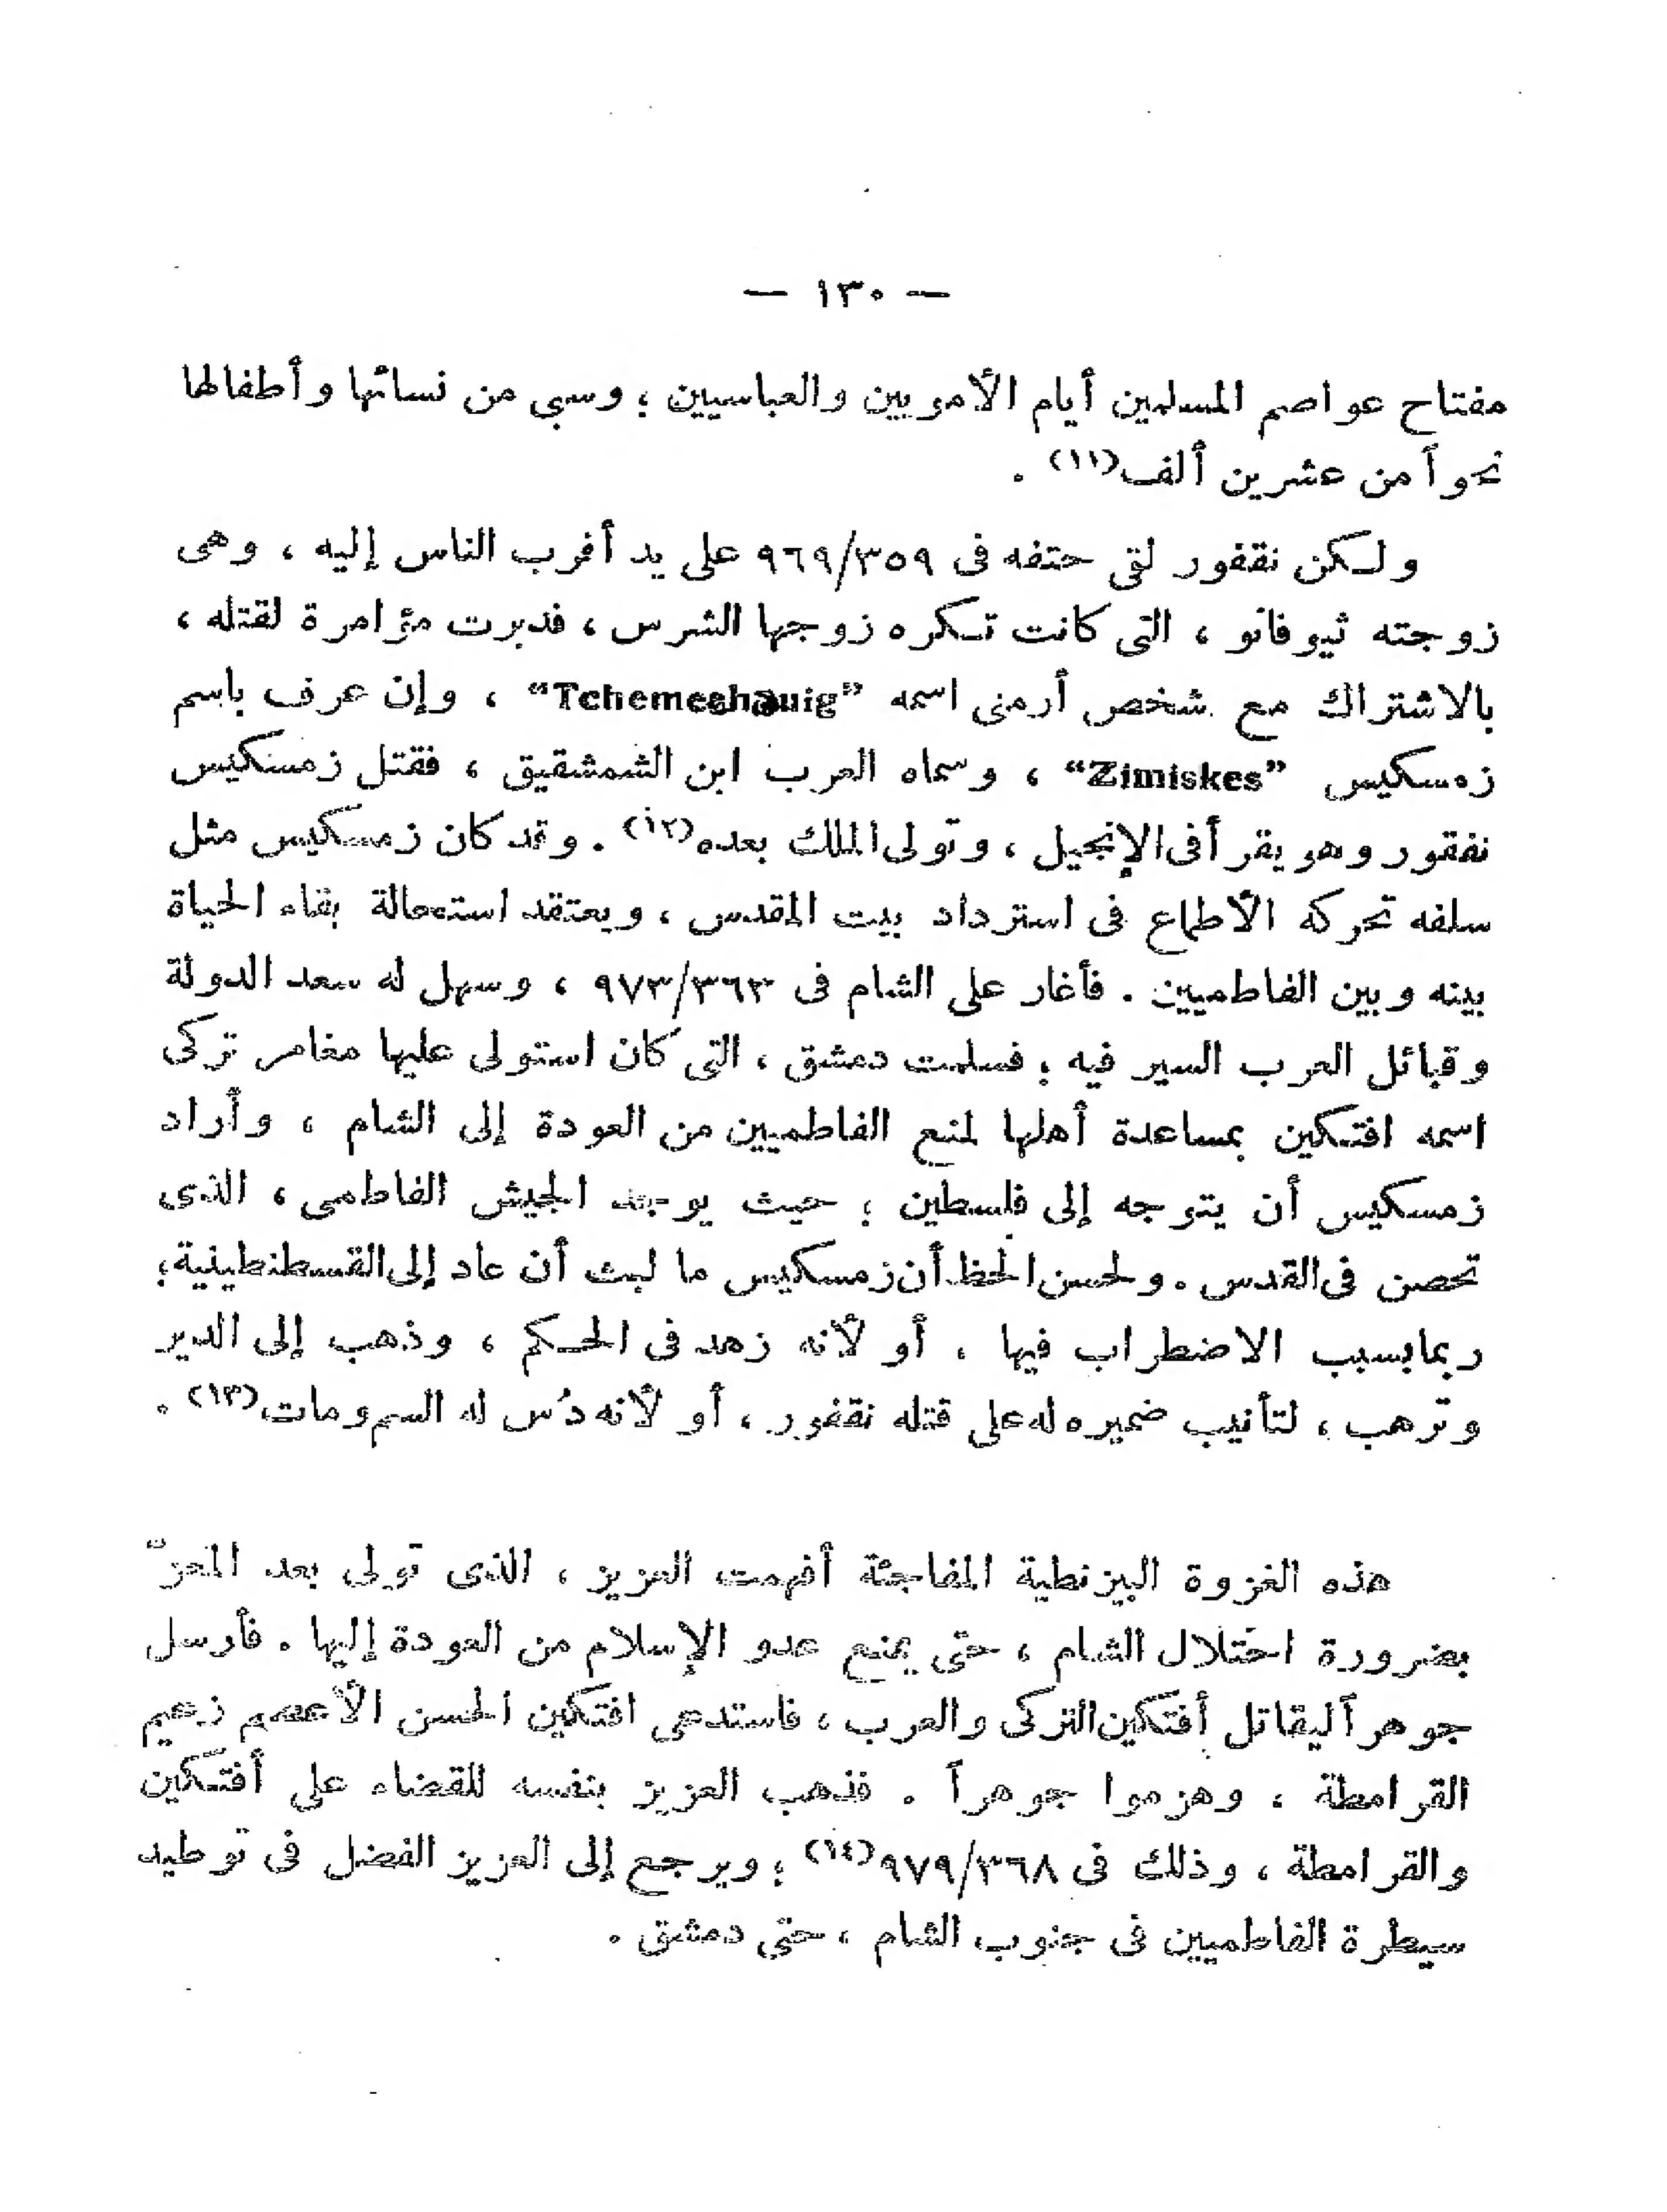 — ١٣٠ —
مفتاح عواصم المسلمين أيام الأمويين والعباسيين ؛ وسبي من نسائها وأطفالها
نحواً من عشرين ألف(١١) .
ولكن نقفور لقى حتفه فى ٩٦٩/٣٥٩ على يد أقرب الناس إليه ، وهى
زوجته ثيوفانو ، التى كانت تكره زوجها الشرس ، فدبرت مؤامرة لقتله ،
بالاشتراك مع شخص أرمنى اسمه “Tchemeshguig” ، وإن عرف باسم
زمسكيس “Zimiskes” ، وسماه العرب ابن الشمشقيق ، فقتل زمسكيس
نفقور وهو يقرأ فى الإنجيل ، وتولى الملك بعده(١٢) . وقد كان زمسكيس مثل
سلفه تحركه الأطماع فى استرداد بيت المقدس ، ويعتقد استحالة بقاء الحياة
بينه وبين الفاطميين . فأغار على الشام فى ٩٧٣/٣٦٣ ، وسهل له سعد الدولة
وقبائل العرب السير فيه ؛ فسلمت دمشق ، التى كان استولى عليها مغامر تركى
اسمه افتكين بمساعدة أهلها لمنع الفاطميين من العودة إلى الشام ، وأراد
زمسكيس أن يتوجه إلى فلسطين ؛ حيث يوجد الجيش الفاطمى ، الذى
تحصن فى القدس . ولحسن الحظ أن زمسكيس ما لبث أن عاد إلى القسطنطينية ؛
ربما بسبب الاضطراب فيها ، أو لأنه زهد فى الحكم ، وذهب إلى الدير
وترهب ، لتأنيب ضميره له على قتله نقفور ، أو لأنه دُس له السم ومات(١٣) .
هذه الغزوة البيزنطية المفاجئة أفهمت العزيز ، الذى تولى بعد المعزّ
بضرورة احتلال الشام ، حتى يمنع عدو الإسلام من العودة إليها . فأرسل
جوهراً ليقاتل أفتكين التركى والعرب ، فاستدعى افتكين الحسن الأعصم زعيم
القرامطة ، وهزموا جوهراً . فذهب العزيز بنفسه للقضاء على أفتكين
والقرامطة ، وذلك فى ٩٧٩/٣٦٨(١٤) ؛ ويرجع إلى العزيز الفضل فى توطيد
سيطرة الفاطميين فى جنوب الشام ، حتى دمشق .